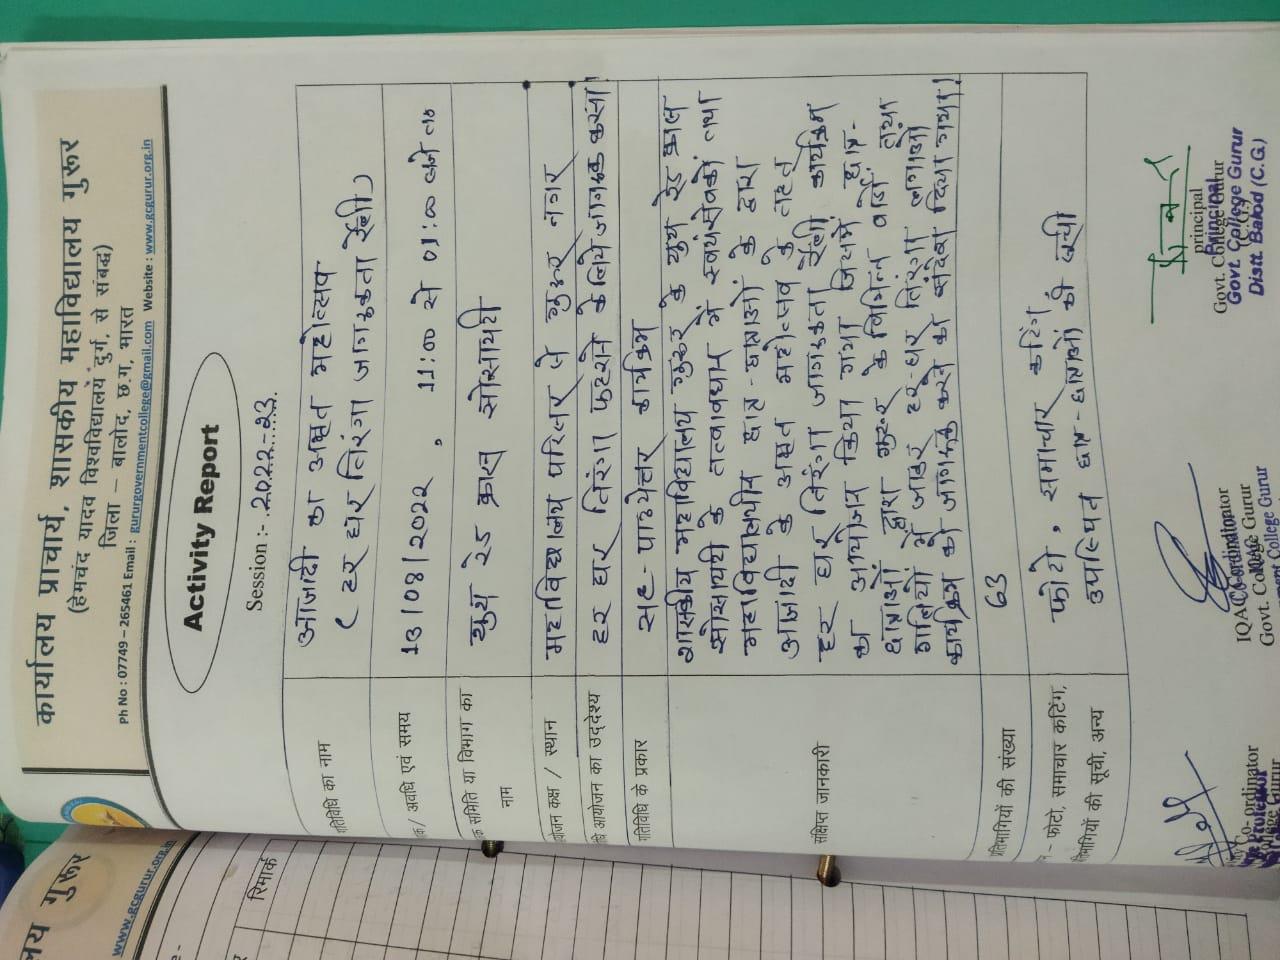 कार्यालय प्राचार्य, शासकीय महाविद्यालय गुरूर
(हेमचंद यादव विश्वविद्यालय दुर्ग, से संबद्ध)
जिला – बालोद, छ.ग. भारत
Ph No : 07749 – 265461 Email : gururgovernmentcollege@gmail.com Website : www.gcgurur.org.in
Activity Report
Session :- 2022-23
गतिविधि का नाम
आजादी का अमृत महोत्सव
( हर घर तिरंगा जागरूकता रैली )
/ अवधि एवं समय
13/08/2022 , 11:00 से 01:00 बजे तक
समिति या विभाग का
नाम
यूथ रेड क्रास सोसायटी
कक्ष / स्थान
महाविद्यालय परिसर से गुरूर नगर
आयोजन का उद्देश्य
हर घर तिरंगा फहराने के लिये जागरूक करना।
गतिविधि के प्रकार
सह - पाठ्येत्तर कार्यक्रम
संक्षिप्त जानकारी
शासकीय महाविद्यालय गुरूर के यूथ रेड क्रास
सोसायटी के तत्वावधान में स्वयंसेवकों तथा
महाविद्यालयीन छात्र - छात्राओं के द्वारा
आजादी के अमृत महोत्सव के तहत
हर घर तिरंगा जागरूकता रैली कार्यक्रम
का आयोजन किया गया जिसमें छात्र -
छात्राओं द्वारा गुरूर के विभिन्न वार्ड तथा
गलियों में जाकर हर-घर तिरंगा लगाओ
को जागरूक करने का संदेश दिया गया।
प्रतिभागियों की संख्या
63
- फोटो, समाचार कटिंग,
प्रतिभागियों की सूची, अन्य
फोटो , समाचार कटिंग
उपस्थित छात्र - छात्राओं की सूची
Co-ordinator
IQAC Co-ordinator
Govt. College Gurur
principal
Govt. College Gurur
Principal
Govt. College Gurur
Distt. Balod (C.G.)
गुरूर
www.gcgurur.org.in
रिमार्क